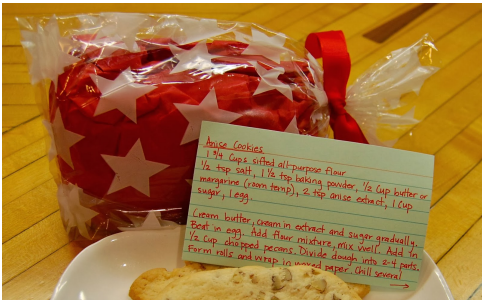 Anise Cookies
1 3/4 Cups sifted all-purpose flour
1/2 tsp salt, 1 1/2 tsp baking powder, 1/2 Cup butter or
margarine (room temp), 2 tsp anise extract, 1 Cup
sugar, 1 egg.
Cream butter, cream in extract and sugar gradually.
Beat in egg. Add flour mixture, mix well. Add in
1/2 Cup chopped pecans. Divide dough into 2-4 parts.
Form rolls and wrap in waxed paper. Chill several
→